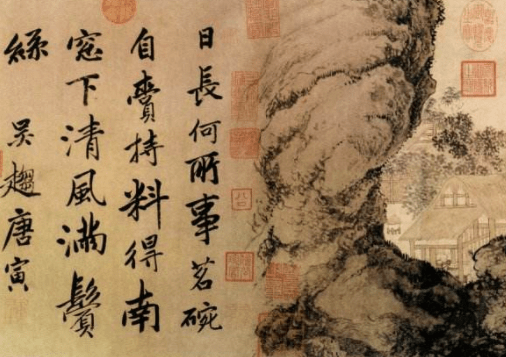 日長何所事茗碗
自賷持料得南
窓下清風滿鬢
絲　吳趨唐寅